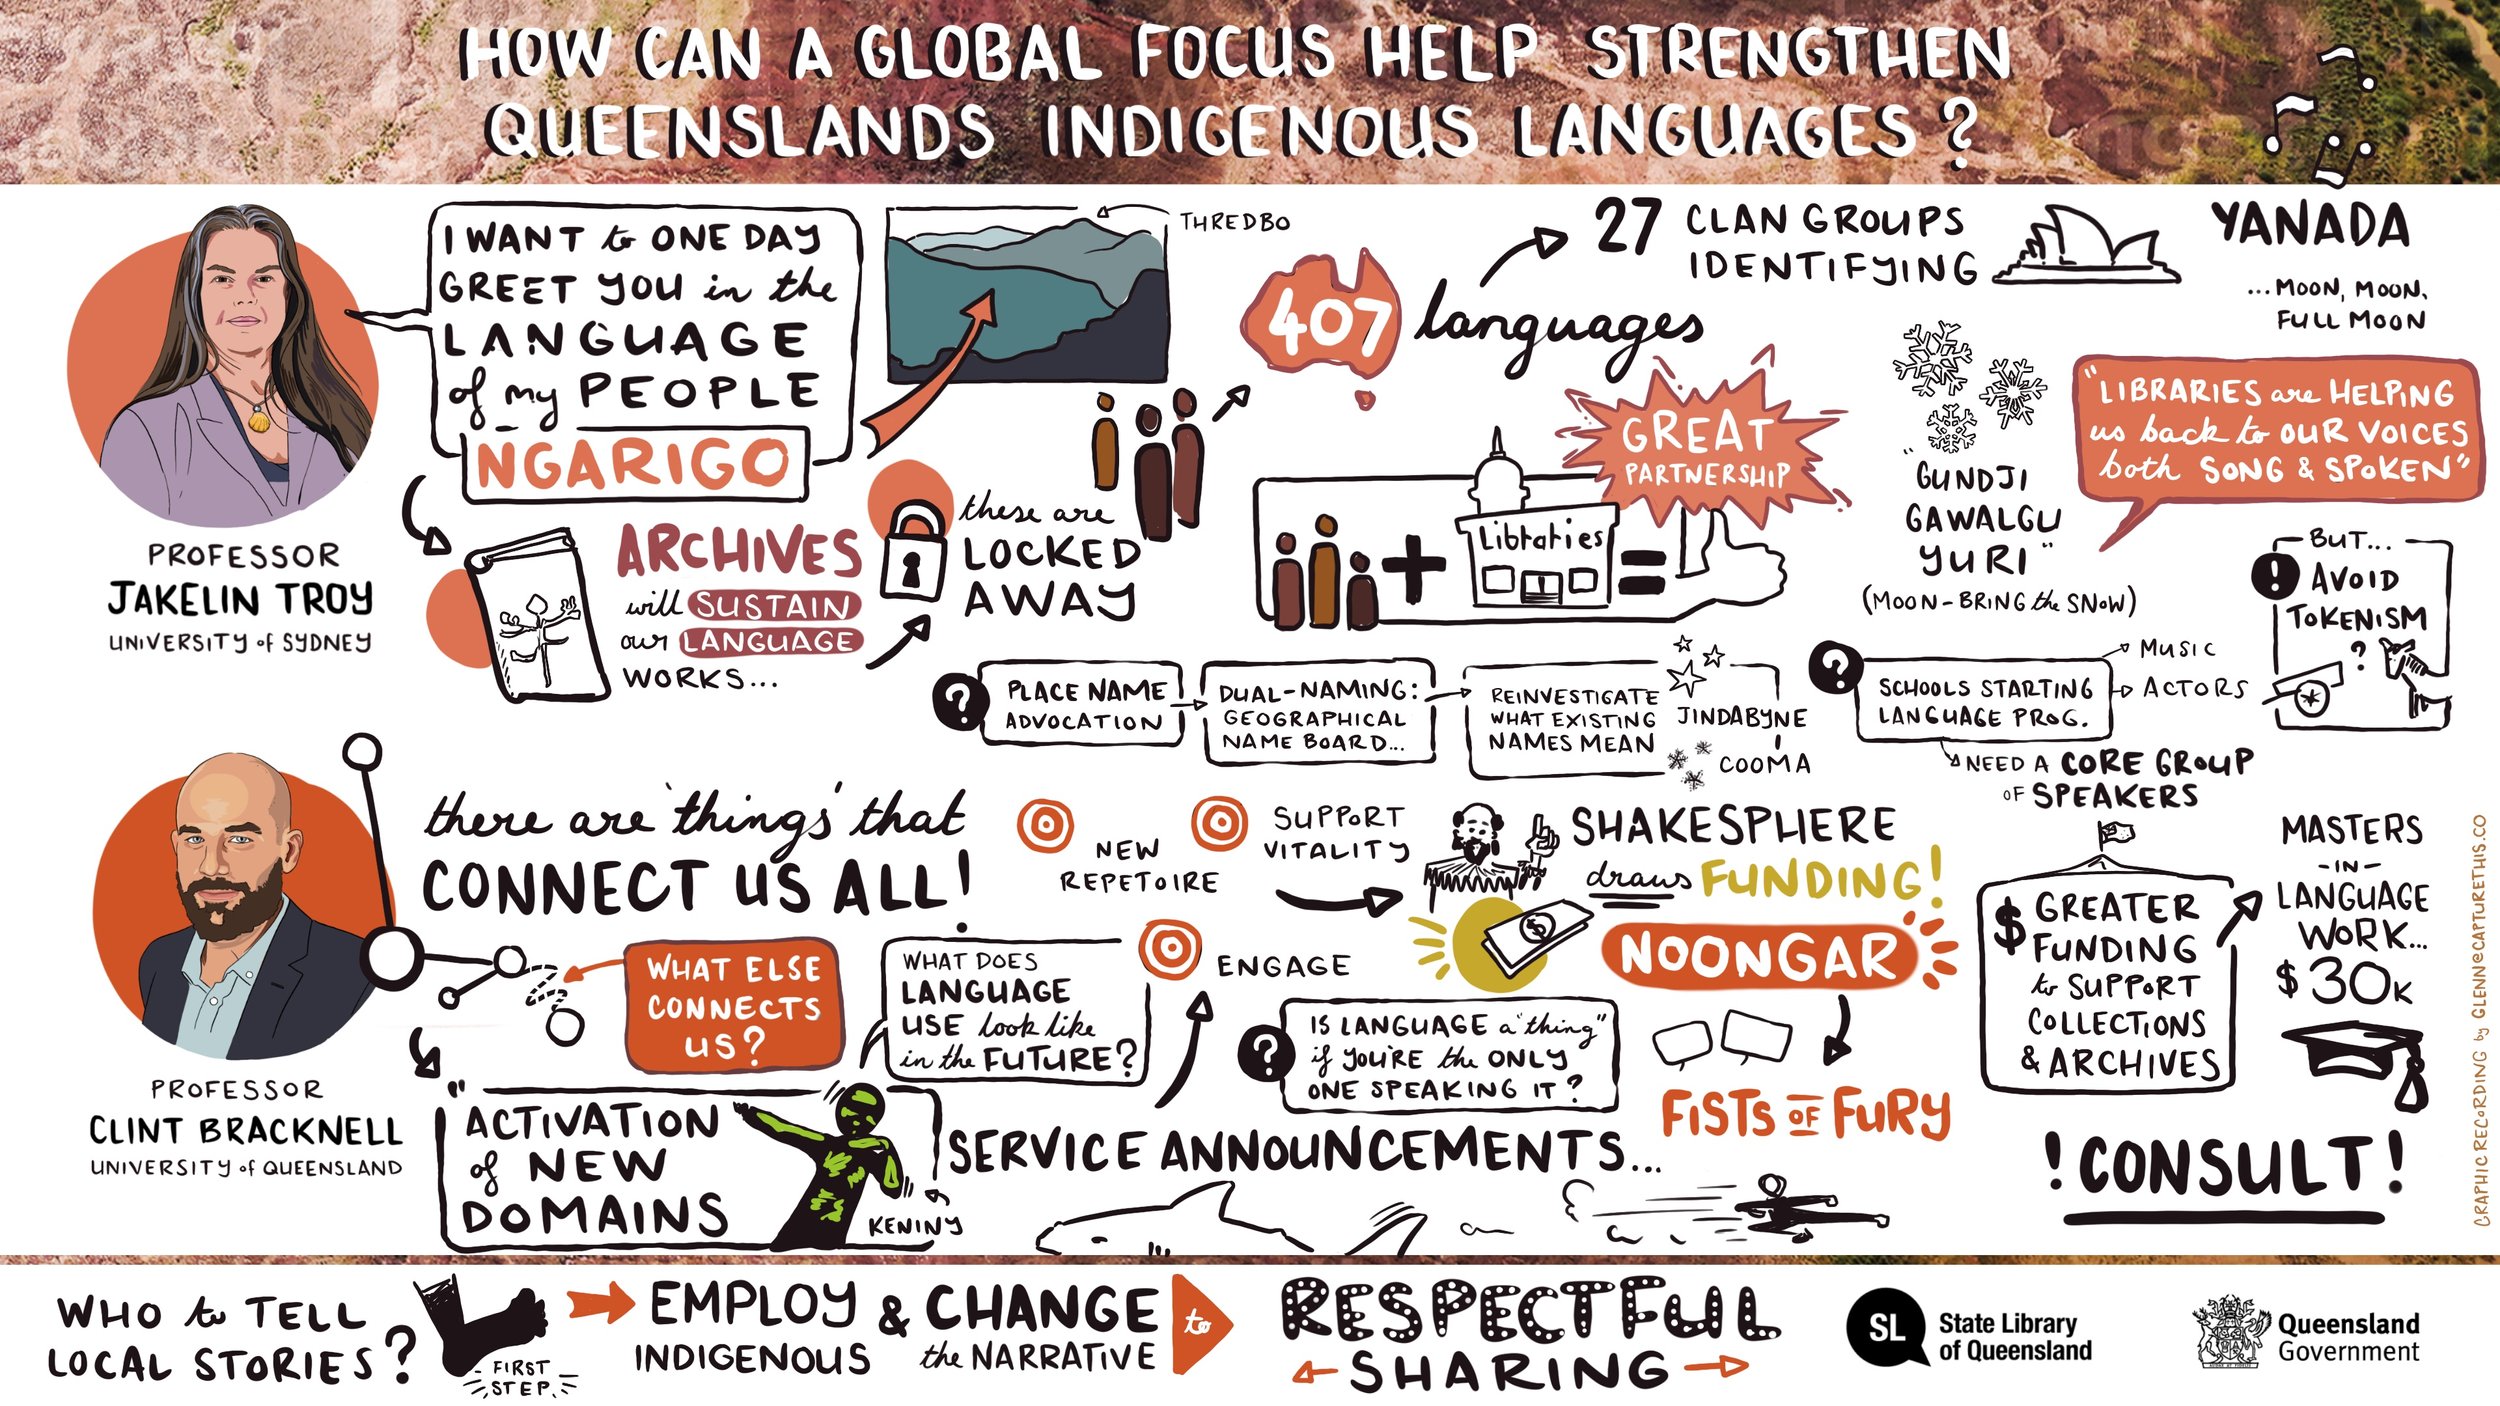 HOW CAN A GLOBAL FOCUS HELP STRENGTHEN
QUEENSLANDS INDIGENOUS LANGUAGES?
I WANT to ONE DAY
GREET YOU in the
LANGUAGE
of my PEOPLE
NGARIGO
PROFESSOR
JAKELIN TROY
UNIVERSITY of SYDNEY
THREDBO
ARCHIVES
will SUSTAIN
our LANGUAGE
WORKS...
these are
LOCKED
AWAY
407 languages
27 CLAN GROUPS
IDENTIFYING
YANADA
...MOON, MOON,
FULL MOON
GREAT
PARTNERSHIP
Libraries
"GUNDJI
GAWALGU
YURI"
(MOON-BRING the SNOW)
"LIBRARIES are HELPING
us back to OUR VOICES
both SONG & SPOKEN"
BUT...
! AVOID
TOKENISM
?
? PLACE NAME
ADVOCATION
DUAL-NAMING:
GEOGRAPHICAL
NAME BOARD...
REINVESTIGATE
WHAT EXISTING
NAMES MEAN
JINDABYNE
COOMA
? SCHOOLS STARTING
LANGUAGE PROG.
MUSIC
ACTORS
NEED A CORE GROUP
OF SPEAKERS
PROFESSOR
CLINT BRACKNELL
UNIVERSITY of QUEENSLAND
there are 'things' that
CONNECT US ALL!
WHAT ELSE
CONNECTS
US?
"ACTIVATION
of NEW
DOMAINS
KENINY
WHAT DOES
LANGUAGE
USE look like
in the FUTURE?
NEW
REPETOIRE
SUPPORT
VITALITY
ENGAGE
SHAKESPHERE
draws FUNDING!
$
NOONGAR
? IS LANGUAGE a "thing"
if YOU'RE the ONLY
ONE SPEAKING IT?
FISTS OF FURY
SERVICE ANNOUNCEMENTS...
$ GREATER
FUNDING
to SUPPORT
COLLECTIONS
& ARCHIVES
MASTERS
-IN-
LANGUAGE
WORK...
$30K
!CONSULT!
GRAPHIC RECORDING by GLENN@CAPTURETHIS.CO
WHO to TELL
LOCAL STORIES?
-FIRST
STEP-
EMPLOY
INDIGENOUS
& CHANGE
the NARRATIVE
to
RESPECTFUL
SHARING
SL
State Library
of Queensland
Queensland
Government